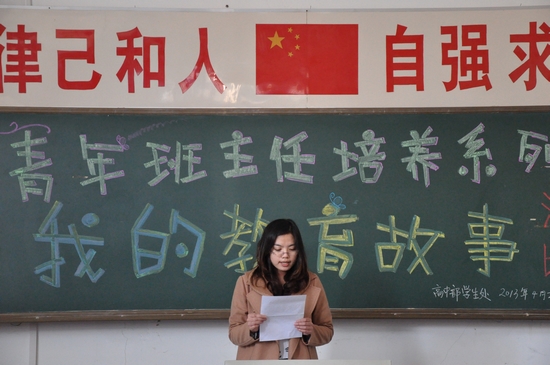 律己和人 自强求
青年班主任培养系列
我的教育故事
高中部学生处 2013年4月